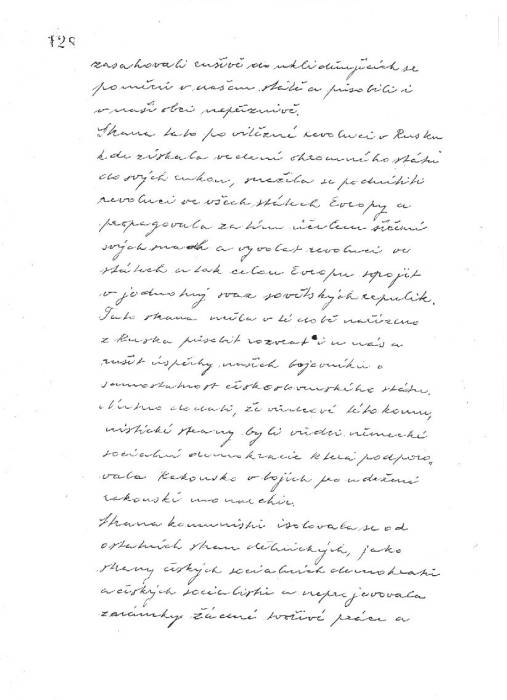 128
zasahovali rušivě do uklidňujících se
poměrů v našem státě a působili i
v naší obci nepříznivě.
Strana tato po vítězné revoluci v Rusku
kde získala vedení ohromného státu
do svých rukou, snažila se podnítiti
revoluci ve všech státech Evropy a
propagovala za tím účelem šíření
svých snah a vyvolat revoluci ve
státech a tak celou Evropu spojit
v jednotný svaz sovětských republik.
Tato strana měla v té době nařízeno
z Ruska působit rozvrat i u nás a
rušit úspěchy našich bojovníků o
samostatnost československého státu.
Nutno dodati, že vůdcové této komu,
nistické strany byli vůdci německé
sociální demokracie která podporo,
vala Rakousko v bojích po udržení
rakouské monarchie.
Strana komunistů isolovala se od
ostatních stran dělnických, jako
strany českých sociálních demokratů
a českých socialistů a neprojevovala
zárámky žádné tvořivé práce a